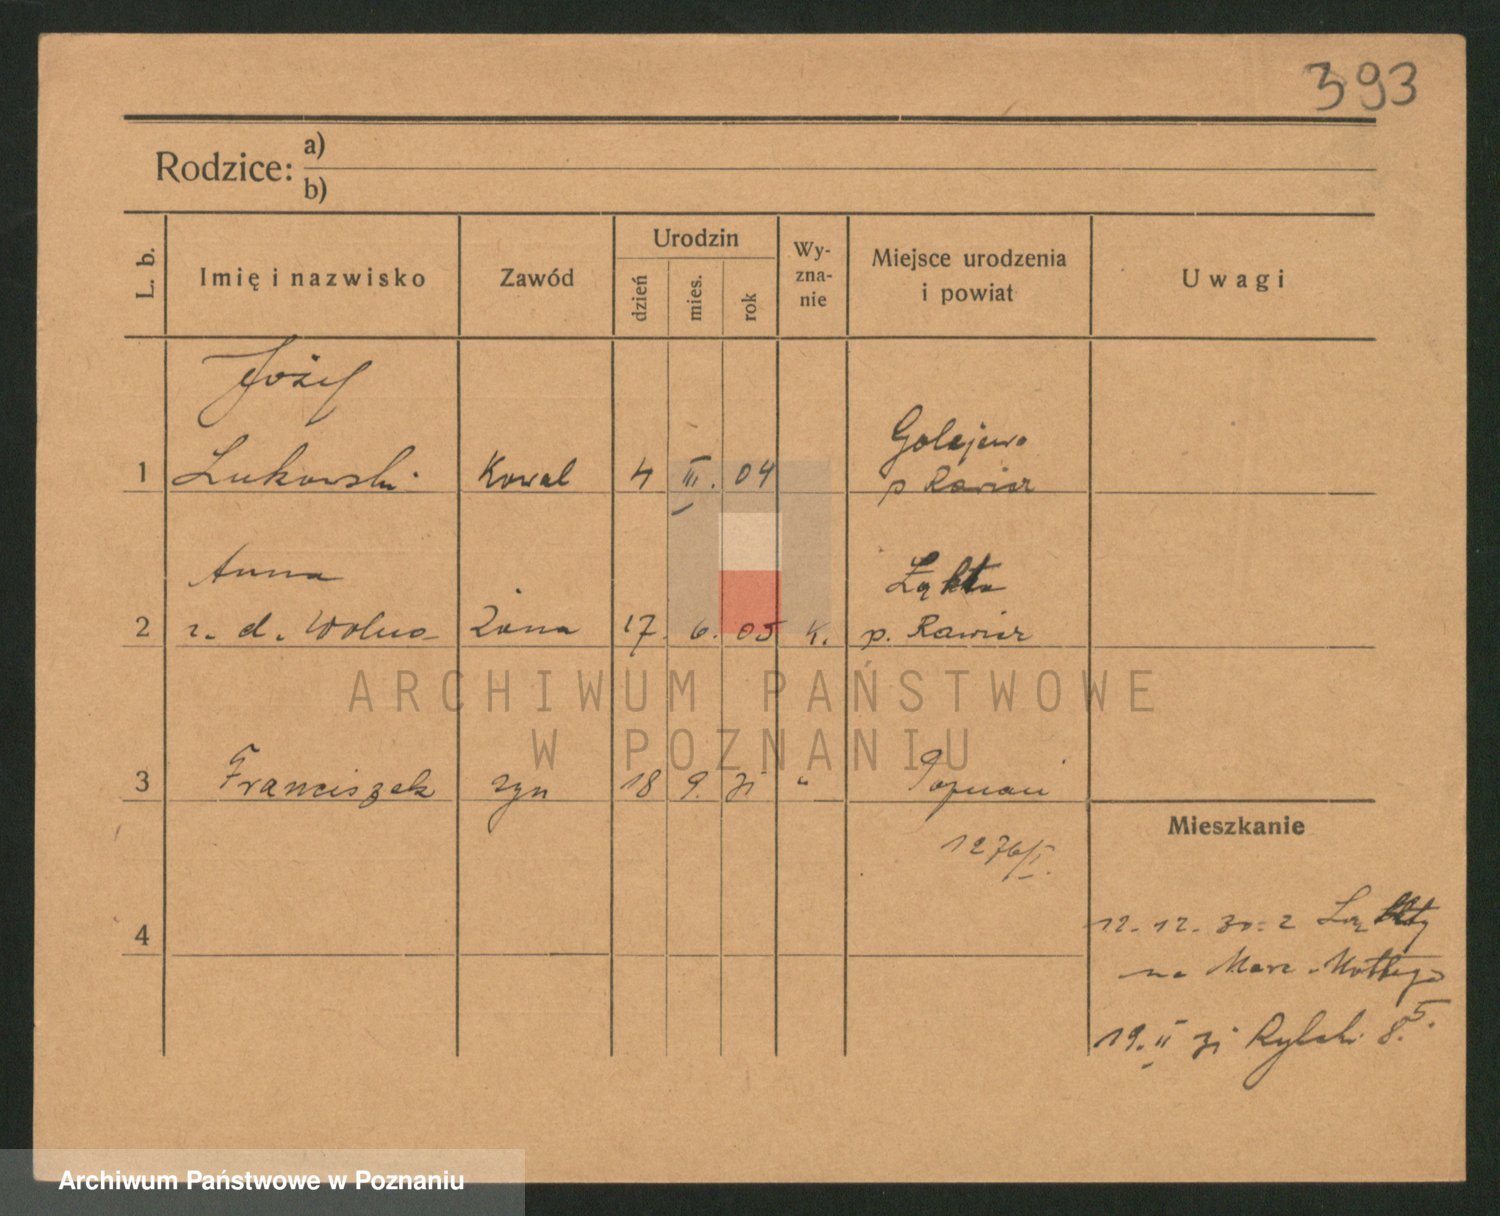 393
Rodzice: a)
b)
L. b.
Imię i nazwisko
Zawód
Urodzin
dzień
mies.
rok
Wy-
zna-
nie
Miejsce urodzenia
i powiat
Uwagi
Józef
1 Lukowski Kowal 4 III. 04
Golejewo
p Rawicz
Anna
2 z. d. Wolna Żona 17. 6. 05 K.
Łąkta
p. Rawicz
3 Franciszek syn 18 9. 31 " Poznań
1276/I.
4
Mieszkanie
12. 12. 30. z Łąkty
na Marc. Mottego
5.
19. II 31 8.
ARCHIWUM PAŃSTWOWE
W POZNANIU
Archiwum Państwowe w Poznaniu